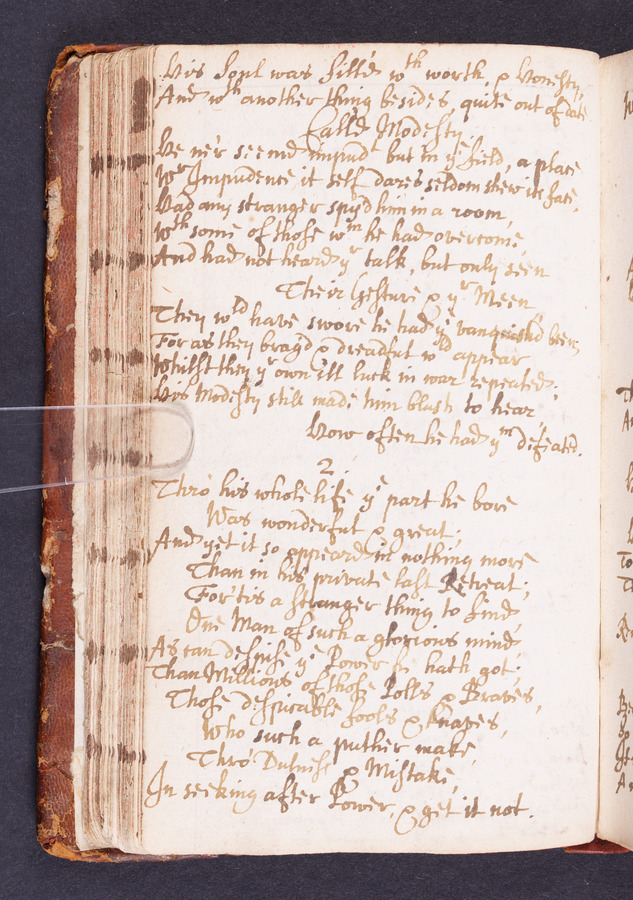 His Soul was fill'd wth worth & Honesty,
And wth another thing besides, quite out of date
Call'd Modesty.
He ne'r seem'd impudt but in ye field, a place
Wr Impudence it self dares seldom shew its face.
Had any stranger spy'd him in a room,
Wth some of those wm he had overcome,
And had not heard yr talk, but only seen
Their Gesture & yr Meen
They wld have swore he had ye vanquish'd been,
For as they brag'd & dreadful wld appear
Whilst they yr own ill luck in war repeated,
His Modesty still made him blush to hear
How often he had ym defeated.
2.
Thro his whole life ye part he bore
Was wonderful & great;
And yet it so appear'd in nothing more
Than in his private last Retreat;
For tis a stranger thing to find
One Man of such a glorious mind
As can despise ye Power he hath got;
Than Millions of those Polls & Braves,
Those despicable fools & Knaves,
Who such a puther make,
Thro Dulness & Mistake,
In seeking after Power, & get it not.